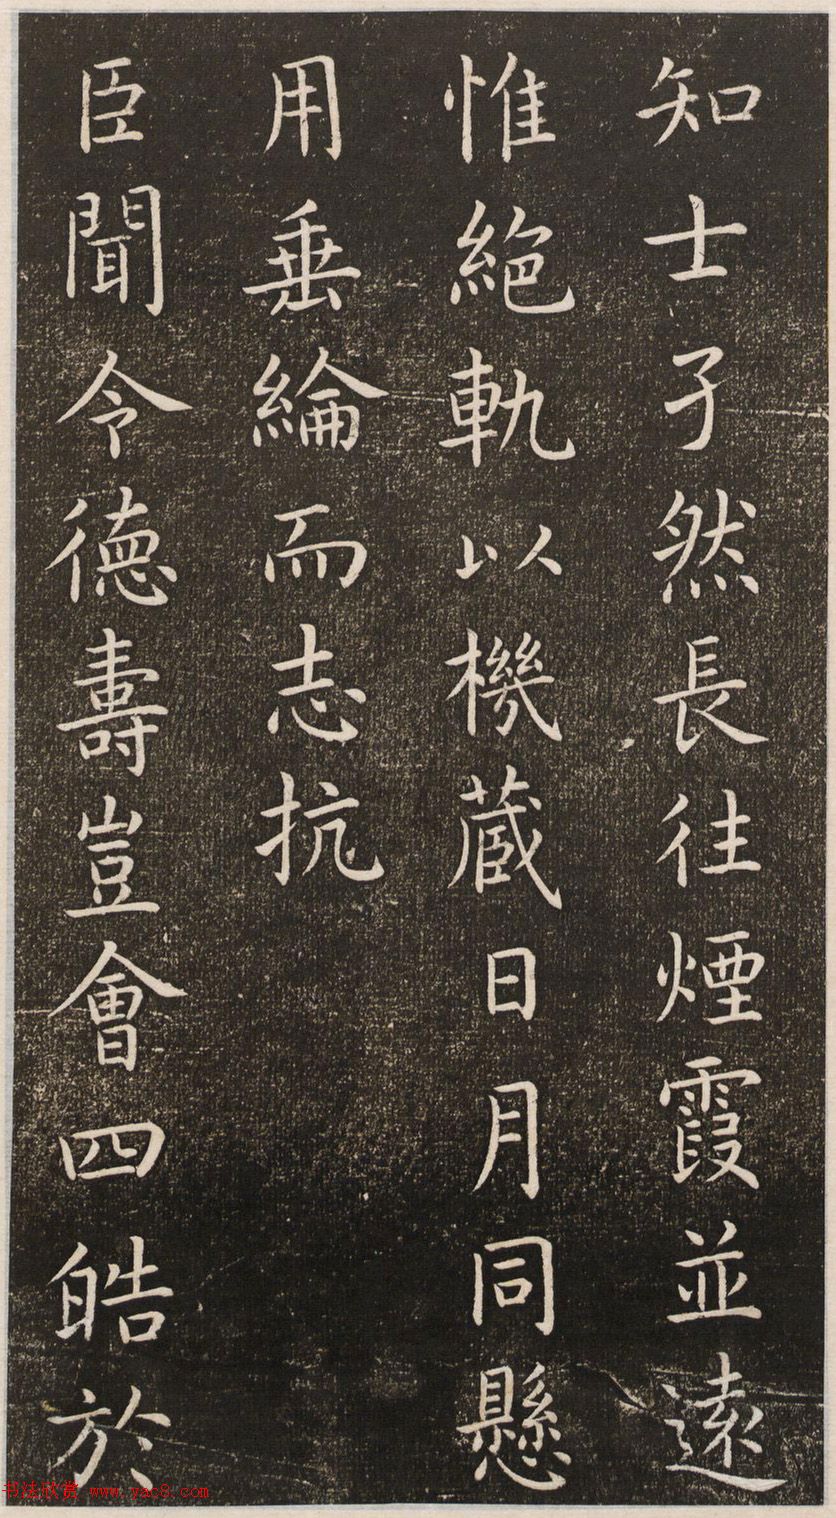 知士孑然長往煙霞並遠
惟絕軌以機蔵日月同懸
用垂綸而志抗
臣聞令德壽豈會四皓於
书法欣赏 www.yac8.com